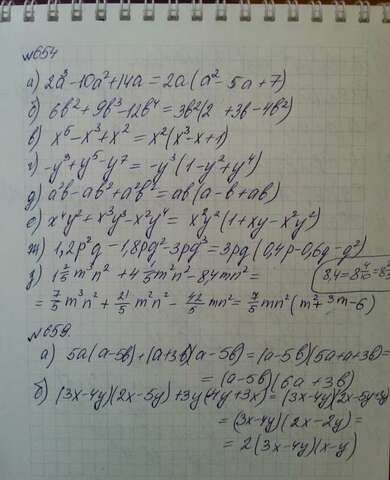 №654
а) 2a³-10a²+14a = 2a(a²-5a+7)
б) 6b²+9b³-12b⁴ = 3b²(2+3b-4b²)
в) x⁵-x³+x² = x²(x³-x+1)
г) -y³+y⁵-y⁷ = -y³(1-y²+y⁴)
д) a²b-ab²+a²b² = ab(a-b+ab)
е) x⁴y²+x³y³-x²y⁴ =
ж) 1,2p²q-1,8pq²-3pq³ = 3pq(0,4p-0,6q-q²)
з) m³n² + 4 1/5 m²n² - 8,4mn² =
8,4=8 4/10=8
= 7/5 m³n² + 21/5 m²n² - 42/5 mn² = 7/5 mn²(m²+3m-6)
№659.
а) 5a(a-5b)+(a+3b)(a-5b) = (a-5b)(5a+a+3b) =
= (a-5b)(6a+3b)
б) (3x-4y)(2x-5y)+3y(-4y+3x) = (3x-4y)
= (3x-4y)(2x-2y) =
= 2(3x-4y)(x-y)